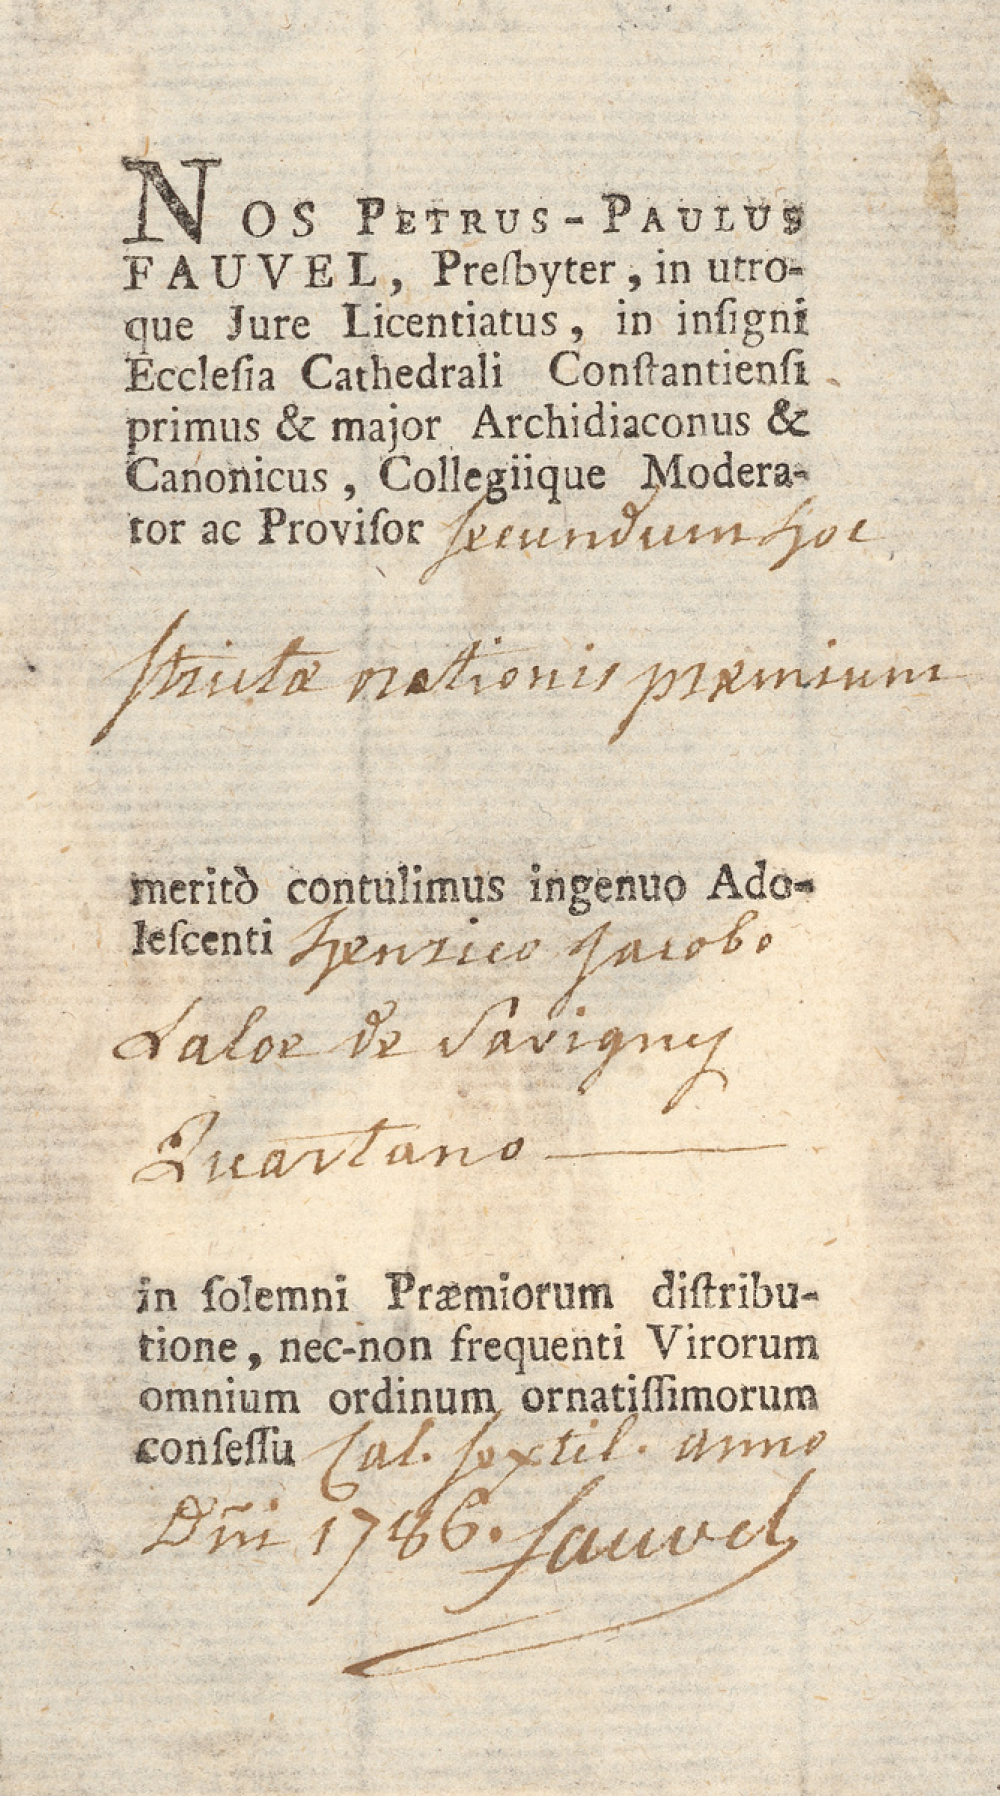 NOS PETRUS-PAULUS
FAUVEL, Preſbyter, in utro-
que Jure Licentiatus, in inſigni
Eccleſia Cathedrali Conſtantienſi
primus & major Archidiaconus &
Canonicus, Collegiique Modera-
tor ac Proviſor ſecundum hoc
ſtrictæ orationis præmium
meritò contulimus ingenuo Ado-
leſcenti henrico Jacobo
Laloe de Savigny
Quartano
in ſolemni Præmiorum diſtribu-
tione, nec-non frequenti Virorum
omnium ordinum ornatiſſimorum
conſeſſu Cal. ſextil. anno
Dñi 1786. fauvel